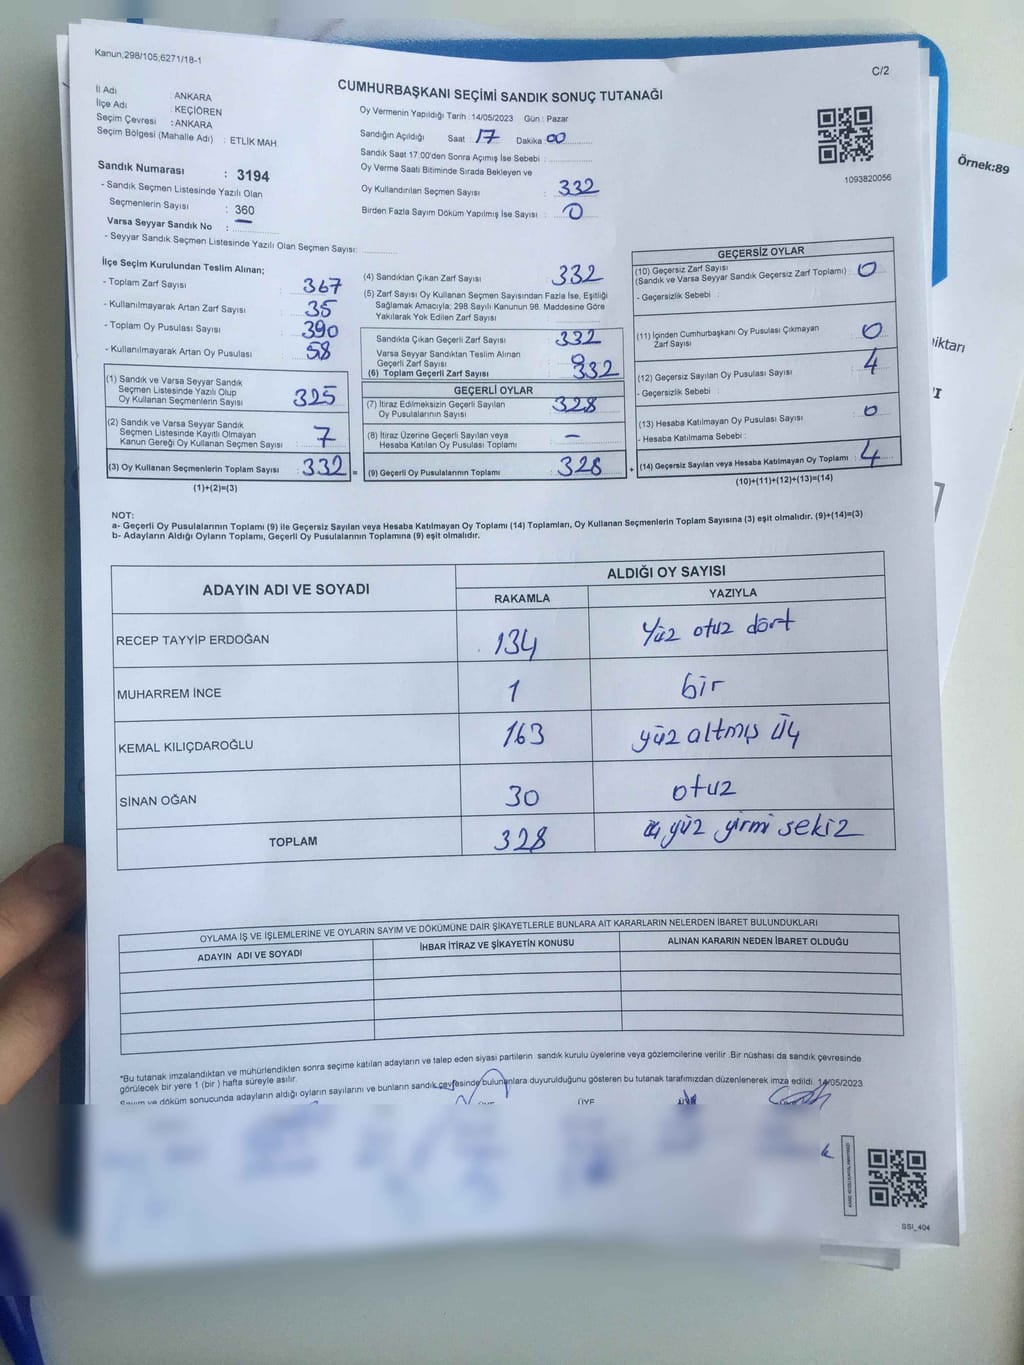 Kanun,298/105,6271/18-1
C/2
Örnek:89
CUMHURBAŞKANI SEÇİMİ SANDIK SONUÇ TUTANAĞI
İl Adı : ANKARA
İlçe Adı : KEÇİÖREN
Seçim Çevresi : ANKARA
Seçim Bölgesi (Mahalle Adı) : ETLİK MAH.
Sandık Numarası : 3194
- Sandık Seçmen Listesinde Yazılı Olan
Seçmenlerin Sayısı : 360
Varsa Seyyar Sandık No : —
- Seyyar Sandık Seçmen Listesinde Yazılı Olan Seçmen Sayısı:
Oy Vermenin Yapıldığı Tarih : 14/05/2023 Gün : Pazar
Sandığın Açıldığı Saat 17 Dakika : 00
Sandık Saat 17:00'den Sonra Açımış İse Sebebi :
Oy Verme Saati Bitiminde Sırada Bekleyen ve
Oy Kullandırılan Seçmen Sayısı : 332
Birden Fazla Sayım Döküm Yapılmış İse Sayısı : 0
1093820056
İlçe Seçim Kurulundan Teslim Alınan;
- Toplam Zarf Sayısı : 367
- Kullanılmayarak Artan Zarf Sayısı : 35
- Toplam Oy Pusulası Sayısı : 390
- Kullanılmayarak Artan Oy Pusulası : 58
(1) Sandık ve Varsa Seyyar Sandık
Seçmen Listesinde Yazılı Olup
Oy Kullanan Seçmenlerin Sayısı : 325
(2) Sandık ve Varsa Seyyar Sandık
Seçmen Listesinde Kayıtlı Olmayan
Kanun Gereği Oy Kullanan Seçmen Sayısı : 7
(3) Oy Kullanan Seçmenlerin Toplam Sayısı : 332 =
(1)+(2)=(3)
(4) Sandıktan Çıkan Zarf Sayısı : 332
(5) Zarf Sayısı Oy Kullanan Seçmen Sayısından Fazla İse, Eşitliği
Sağlamak Amacıyla; 298 Sayılı Kanunun 98. Maddesine Göre
Yakılarak Yok Edilen Zarf Sayısı :
Sandıkta Çıkan Geçerli Zarf Sayısı : 332
Varsa Seyyar Sandıktan Teslim Alınan
Geçerli Zarf Sayısı : 0
(6) Toplam Geçerli Zarf Sayısı : 332
GEÇERLİ OYLAR
(7) İtiraz Edilmeksizin Geçerli Sayılan
Oy Pusulalarının Sayısı : 328
(8) İtiraz Üzerine Geçerli Sayılan veya
Hesaba Katılan Oy Pusulası Toplamı : —
(9) Geçerli Oy Pusulalarının Toplamı : 328 +
GEÇERSİZ OYLAR
(10) Geçersiz Zarf Sayısı
(Sandık ve Varsa Seyyar Sandık Geçersiz Zarf Toplamı) : 0
- Geçersizlik Sebebi :
(11) İçinden Cumhurbaşkanı Oy Pusulası Çıkmayan
Zarf Sayısı : 0
(12) Geçersiz Sayılan Oy Pusulası Sayısı : 4
- Geçersizlik Sebebi :
(13) Hesaba Katılmayan Oy Pusulası Sayısı : 0
- Hesaba Katılmama Sebebi :
(14) Geçersiz Sayılan veya Hesaba Katılmayan Oy Toplamı : 4
(10)+(11)+(12)+(13)=(14)
NOT:
a- Geçerli Oy Pusulalarının Toplamı (9) ile Geçersiz Sayılan veya Hesaba Katılmayan Oy Toplamı (14) Toplamları, Oy Kullanan Seçmenlerin Toplam Sayısına (3) eşit olmalıdır. (9)+(14)=(3)
b- Adayların Aldığı Oyların Toplamı, Geçerli Oy Pusulalarının Toplamına (9) eşit olmalıdır.
ADAYIN ADI VE SOYADI
ALDIĞI OY SAYISI
RAKAMLA YAZIYLA
RECEP TAYYİP ERDOĞAN 134 Yüz otuz dört
MUHARREM İNCE 1 bir
KEMAL KILIÇDAROĞLU 163 yüz altmış üç
SİNAN OĞAN 30 otuz
TOPLAM 328 üç yüz yirmi sekiz
OYLAMA İŞ VE İŞLEMLERİNE VE OYLARIN SAYIM VE DÖKÜMÜNE DAİR ŞİKAYETLERLE BUNLARA AİT KARARLARIN NELERDEN İBARET BULUNDUKLARI
ADAYIN ADI VE SOYADI İHBAR İTİRAZ VE ŞİKAYETİN KONUSU ALINAN KARARIN NEDEN İBARET OLDUĞU
*Bu tutanak imzalandıktan ve mühürlendikten sonra seçime katılan adayların ve talep eden siyasi partilerin sandık kurulu üyelerine veya gözlemcilerine verilir. Bir nüshası da sandık çevresinde
görülecek bir yere 1 (bir) hafta süreyle asılır.
Sayım ve döküm sonucunda adayların aldığı oyların sayılarını ve bunların sandık çevresinde bulunanlara duyurulduğunu gösteren bu tutanak tarafımızdan düzenlenerek imza edildi. 14/05/2023
ÜYE ÜYE
SSI_404